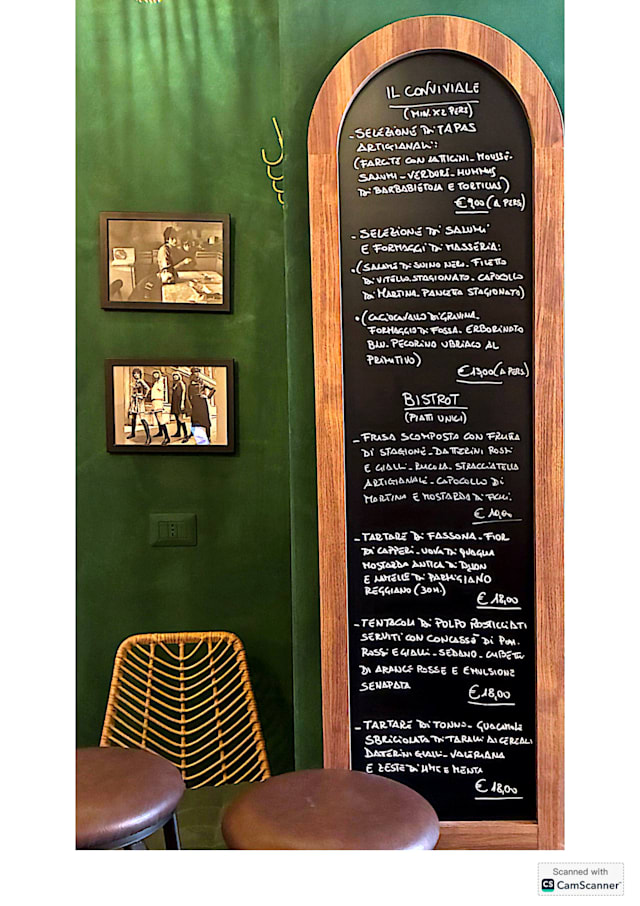 IL CONVIVIALE
(MIN. X2 PERS)
- SELEZIONE DI TAPAS
ARTIGIANALI:
(FARCITE CON LATTICINI - MOUSSE -
SALUMI - VERDURE - HUMMUS
DI BARBABIETOLA E TORTILLAS)
€ 9,00 (A PERS)
- SELEZIONE DI SALUMI
E FORMAGGI DI MASSERIA:
• (SALAME DI SUINO NERO - FILETTO
DI VITELLO STAGIONATO - CAPOCOLLO
DI MARTINA - PANCETTA STAGIONATO)
• (CACIOCAVALLO DI GRAVINA -
FORMAGGIO DI FOSSA - ERBORINATO
BLU - PECORINO UBRIACO AL
PRIMITIVO)
€ 13,00 (A PERS)
BISTROT
(PIATTI UNICI)
- FRISA SCOMPOSTA CON FRUTTA
DI STAGIONE - DATTERINI ROSSI
E GIALLI - RUCOLA - STRACCIATELLA
ARTIGIANALE - CAPOCOLLO DI
MARTINA E MOSTARDA DI FICHI
€ 10,00
- TARTARE DI FASSONA - FIOR
DI CAPPERI - UOVA DI QUAGLIA
MOSTARDA ANTICA DI DIJON
E LAMELLE DI PARMIGIANO
REGGIANO (30 M.)
€ 18,00
- TENTACOLI DI POLPO ROSTICCIATI
SERVITI CON CONCASSÈ DI POM.
ROSSI E GIALLI - SEDANO - CUBETTI
DI ARANCE ROSSE E EMULSIONE
SENAPATA
€ 18,00
- TARTARE DI TONNO - GUACAMOLE
SBRICIOLATA DI TARALLI AI CEREALI
DATERINI GIALLI - VALERIANA
E ZESTE DI LIME E MENTA
€ 18,00
Scanned with
CS CamScanner